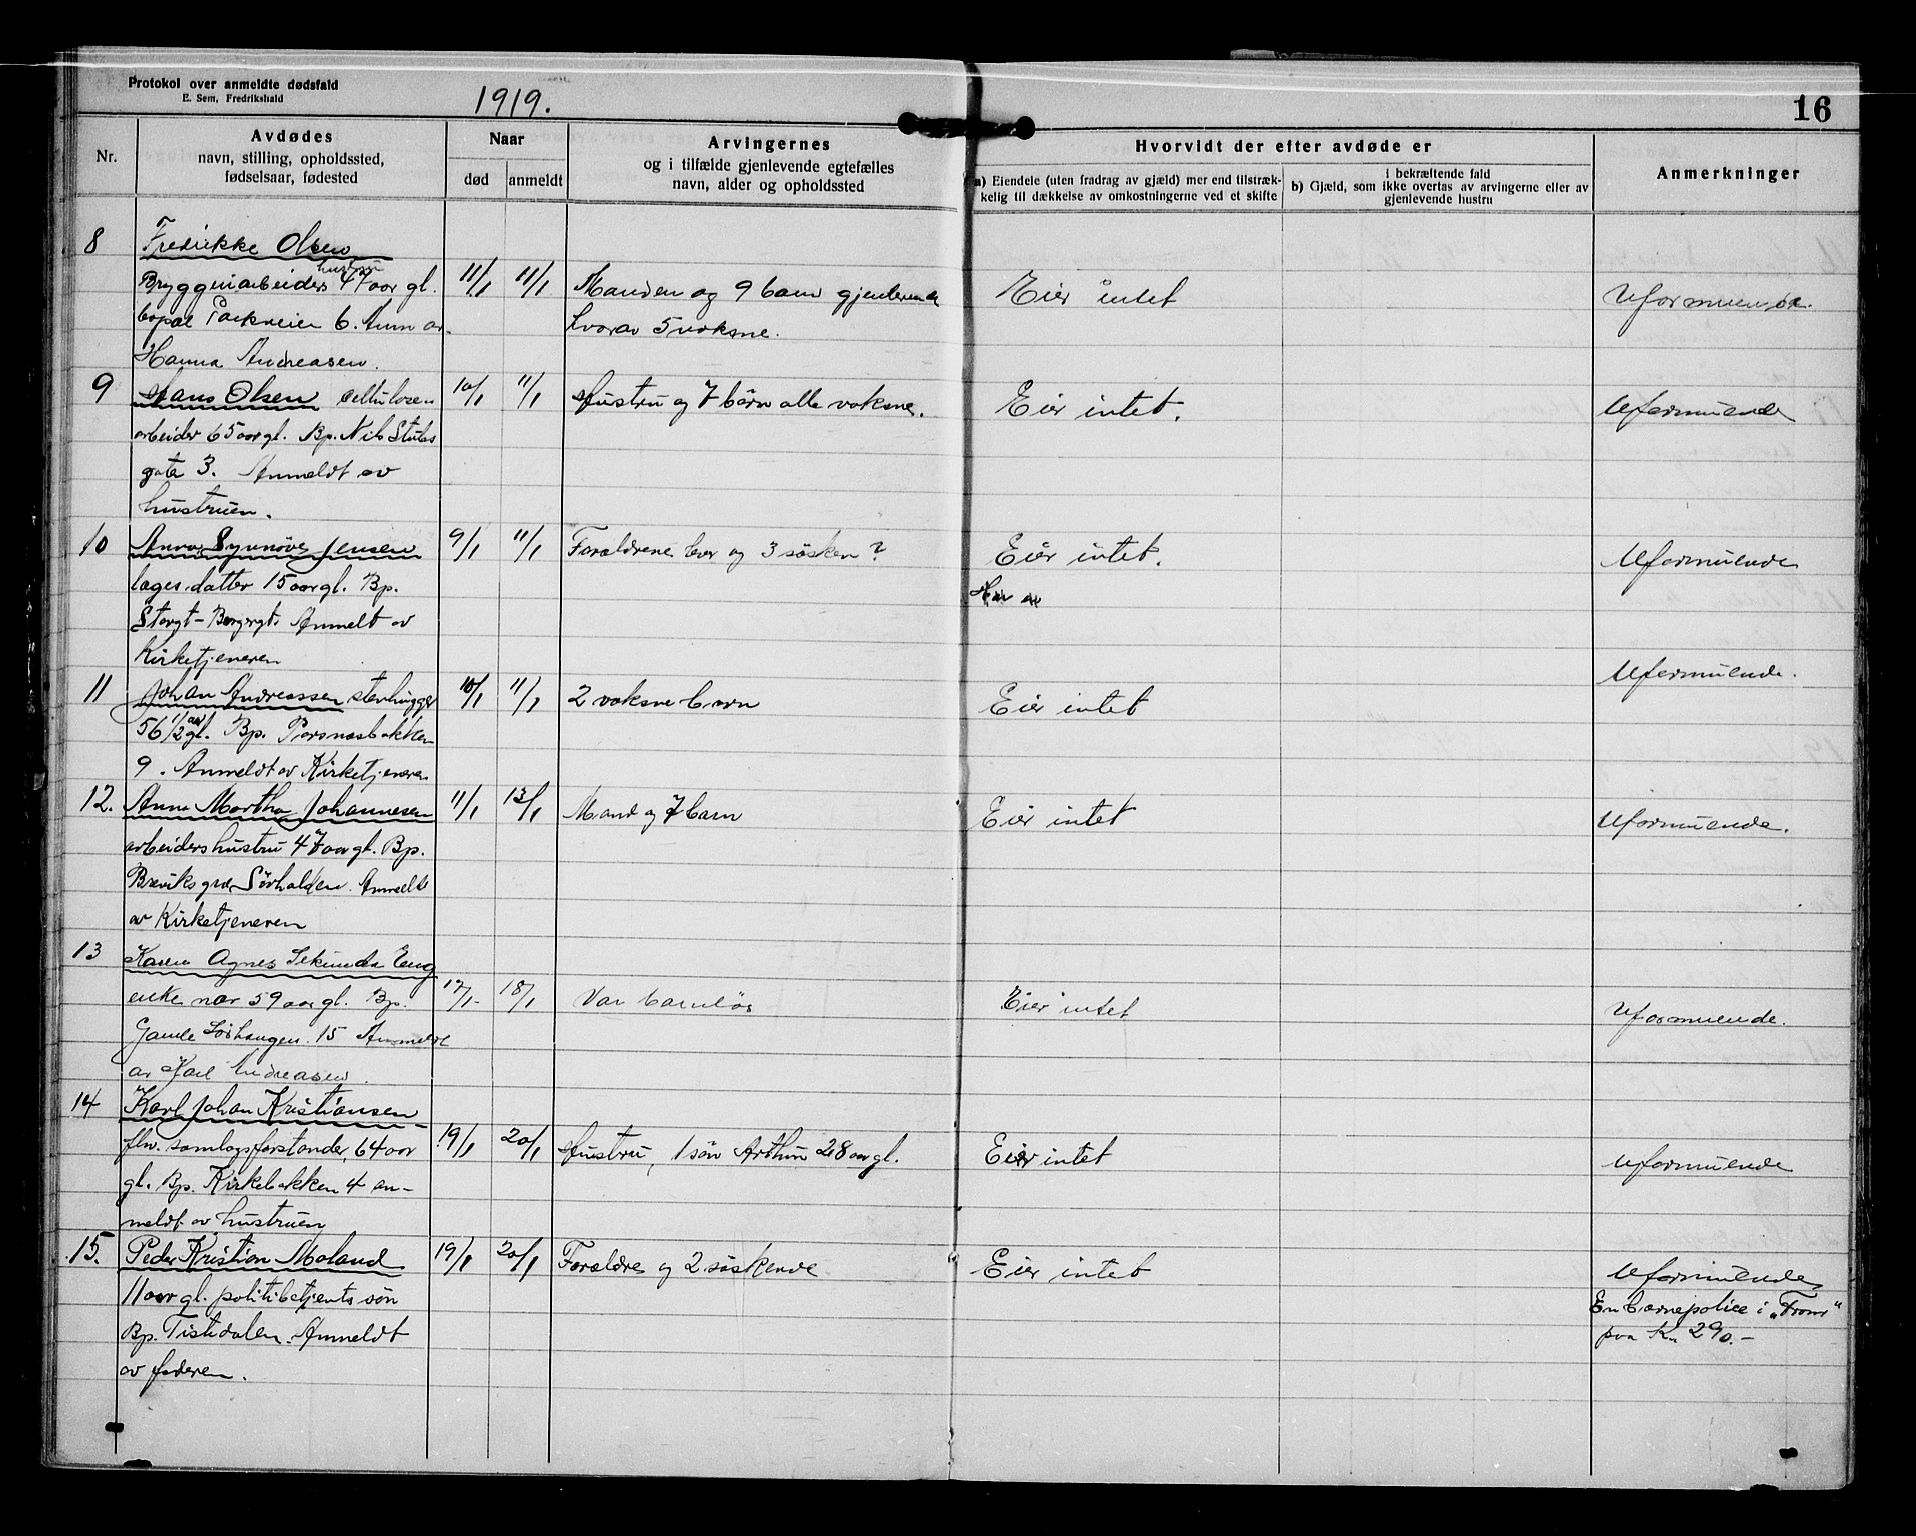 Protokol over anmeldte dødsfald
E. Sem, Fredrikshald
1919.
16
Nr.
Avdødes
navn, stilling, opholdssted,
fødselsaar, fødested
Naar
død
anmeldt
Arvingernes
og i tilfælde gjenlevende egtefælles
navn, alder og opholdssted
Hvorvidt der efter avdøde er
a) Eiendele (uten fradrag av gjæld) mer end tilstræk-
kelig til dækkelse av omkostningerne ved et skifte
i bekræftende fald
b) Gjæld, som ikke overtas av arvingerne eller av
gjenlevende hustru
Anmerkninger
8 Fredrikke Olsen
hustru
Bryggeriarbeiders 47 aar gl. 11/1 11/1 Manden og 9 barn gjenlevende Eier intet Uformuende.
bopæl Parkveien 6. Anm av hvorav 5 voksne.
Hanna Andreasen.
9 Hans Olsen cellulose 10/1 11/1 Hustru og 7 børn alle voksne. Eier intet. Uformuende
arbeider 65 aar gl. Bp. Nils Stubs
gate 3. Anmeldt av
hustruen.
10 Anna Synnöve Jensen 9/1 11/1 Forældrene lever og 3 søsken? Eier intet. Uformuende
datter 15 aar gl. Bp.
Storgt - Borgergt. Anmelt av
Kirketjeneren
11 Johan Andreassen stenhugger 10/1 11/1 2 voksne barn Eier intet Uformuende.
56 1/2 aar gl. Bp. Porsnæsbakken
9. Anmeldt av Kirketjeneren
12. Anna Martha Johannesen 11/1 13/1 Mand og 7 barn Eier intet Uformuende.
arbeiders hustru 47 aar gl. Bp.
Breviks grd Sörhalden. Anmeldt
av Kirketjeneren
13 Karen Agnes Sekunda Eng
enke nær 59 aar gl. Bp. 17/1 18/1 Var barnløs Eier intet Uformuende.
Gamle Sörhaugen 15 Anmeldt
av Karl Andreasen.
14 Karl Johan Kristiansen
fhv. samlagsforstander, 64 aar 19/1 20/1 Hustru, 1 sön Arthur 28 aar gl. Eier intet Uformuende
gl. Bp. Kirkebakken 4 an-
meldt av hustruen
15. Peder Kristian Moland 19/1 20/1 Forældre og 2 søskende Eier intet Uformuende
11 aar gl. politibetjents søn En barnepolice i "Fram"
Bp. Tistedalen. Anmeldt paa Kr. 290.-
av faderen.